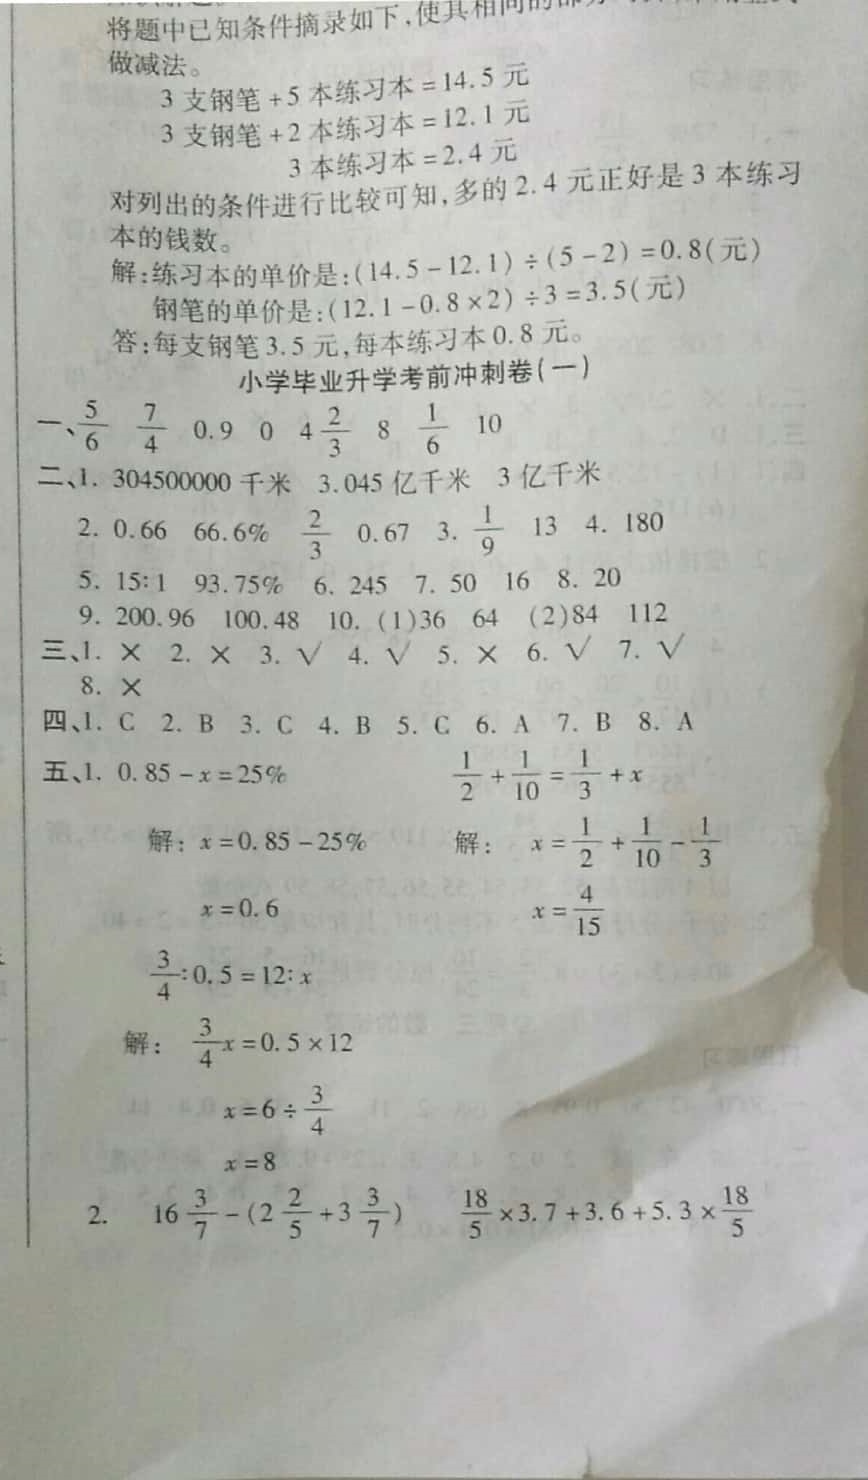 将题中已知条件摘录如下,使其相同的部分
做减法。
3 支钢笔+5 本练习本=14.5 元
3 支钢笔+2 本练习本=12.1 元
3 本练习本=2.4 元
对列出的条件进行比较可知,多的 2.4 元正好是 3 本练习
本的钱数。
解:练习本的单价是:(14.5-12.1)÷(5-2)=0.8(元)
钢笔的单价是:(12.1-0.8×2)÷3=3.5(元)
答:每支钢笔 3.5 元,每本练习本 0.8 元。
小学毕业升学考前冲刺卷(一)
一、5/6 7/4 0.9 0 4 2/3 8 1/6 10
二、1. 304500000 千米 3.045 亿千米 3 亿千米
2. 0.66 66.6% 2/3 0.67 3. 1/9 13 4. 180
5. 15∶1 93.75% 6. 245 7. 50 16 8. 20
9. 200.96 100.48 10. (1)36 64 (2)84 112
三、1. × 2. × 3. √ 4. √ 5. × 6. √ 7. √
8. ×
四、1. C 2. B 3. C 4. B 5. C 6. A 7. B 8. A
五、1. 0.85-x=25% 1/2+1/10=1/3+x
解: x=0.85-25% 解: x=1/2+1/10-1/3
x=0.6 x=4/15
3/4∶0.5=12∶x
解: 3/4x=0.5×12
x=6÷3/4
x=8
2. 16 3/7-(2 2/5+3 3/7) 18/5×3.7+3.6+5.3×18/5